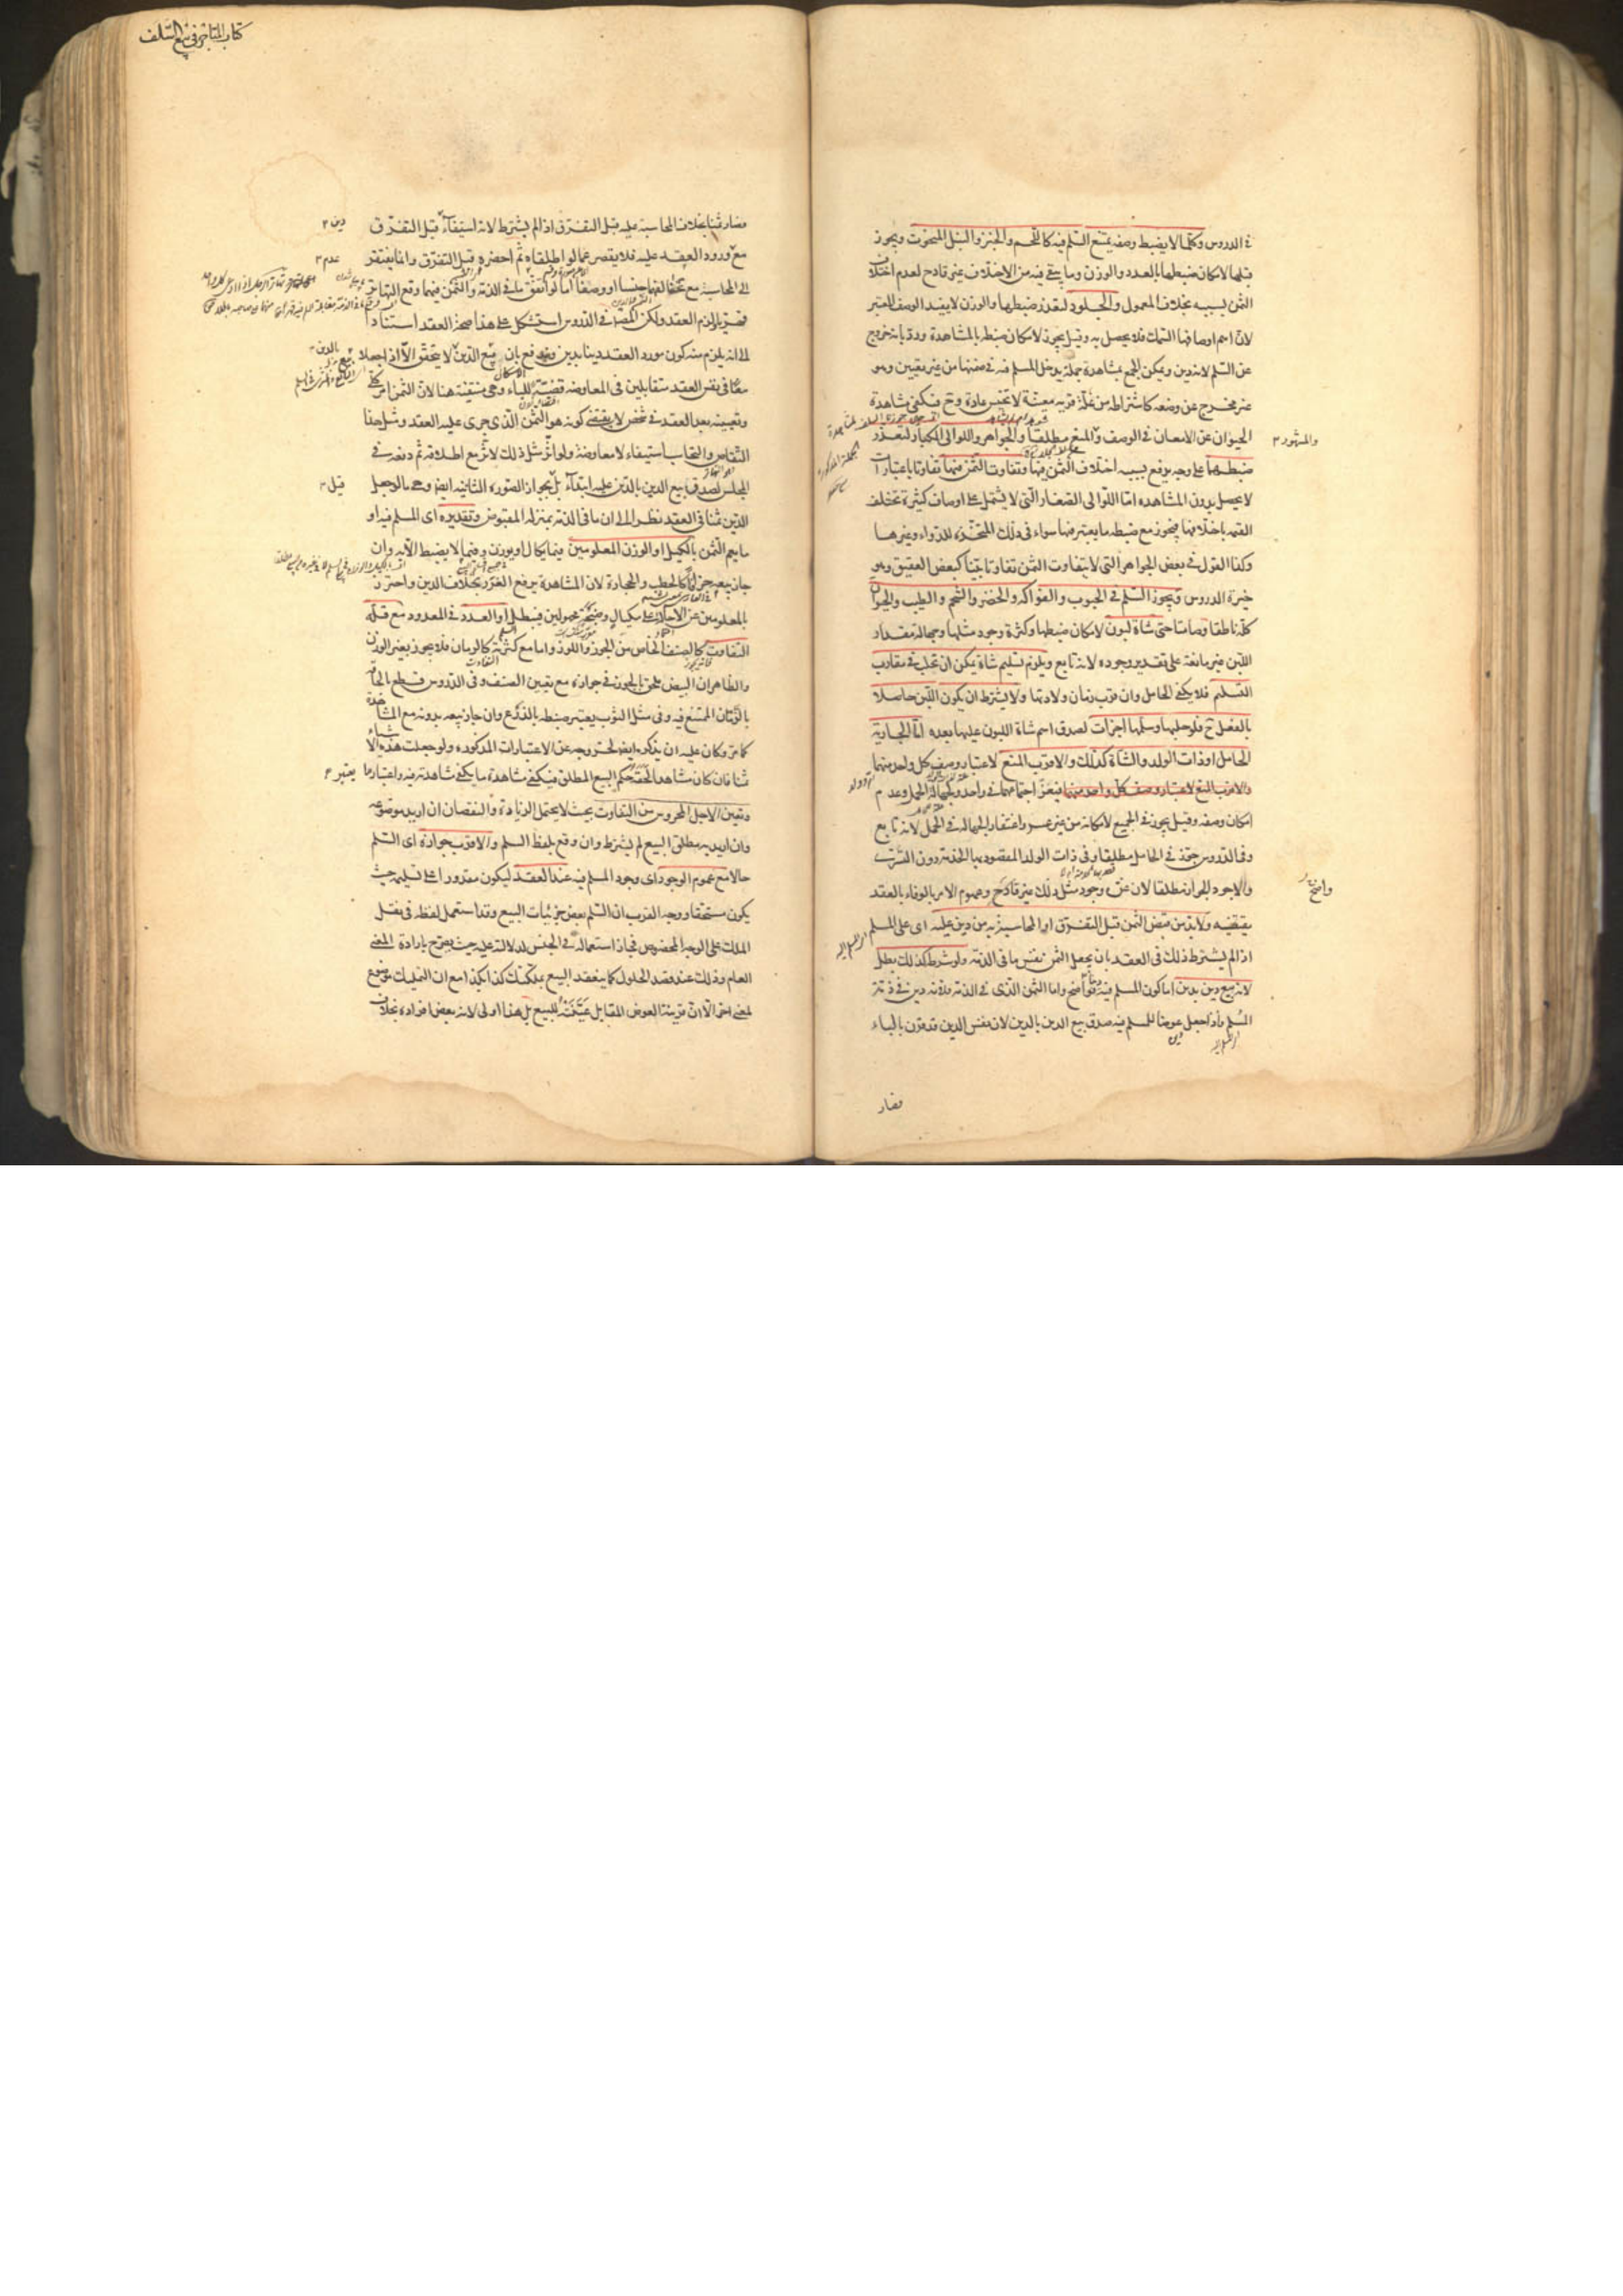 في الدروس وكلما لا يضبط وصفه يمتنع السلم فيه كاللحم والخبز والنبل المنحوت ويجوز
قبلها لامكان ضبطها بالعدد والوزن وما يبقى فيه من الاختلاف غير قادح لعدم اختلاف
الثمن بسببه بخلاف المعمول والجلود لتعذر ضبطها والوزن لا يفيد الوصف المعتبر
لان اهم اوصافها السمك فلا يحصل به وقيل يجوز لامكان ضبطه بالمشاهدة ورد بانه خروج
عن السلم لانه دين ويمكن الجمع بمشاهدة جملة يدخل المسلم فيه في ضمنها من غير تعيين وهو
غير مخرج عن وضعه كاشتراطه من غلة قرية معينة لا تخيس عادة وح فيكفي مشاهدة
الحيوان عن الامعان في الوصف والمنع مطلقا والجواهر واللوالي الكبار لتعذر
والمشهور
ضبطها على وجه يرفع بسببه اختلاف الثمن فيها وتفاوت الثمن فيها تفاوتا باعتبارات
لا يحصل بدون المشاهده اما اللوالي الصغار التي لا يشتمل على اوصاف كثيرة تختلف
القيمه باختلافها فيجوز مع ضبطه ما يعتبر فيها سواء في ذلك المتخذة للدواء وغيرها
وكذا القول في بعض الجواهر التي لا يتفاوت الثمن تفاوتا بينا كبعض العقيق وهو
خيرة الدروس ويجوز السلم في الحبوب والفواكه والخضر والشحم والطيب والحيوان
كله ناطقا وصامتا حتى شاة لبون لامكان ضبطها وكثرة وجود مثلها وجهالة مقدار
اللبن غير مانعة على تقدير وجوده لانه تابع ويلزم تسليم شاة يمكن ان تحلب في مقارب
التسليم فلا يكفي الحامل وان قرب زمان ولادتها ولا يشترط ان يكون اللبن حاصلا
بالفعل ح فلو حلبها وسلمها اجزات لصدق اسم شاة اللبون عليها بعده اما الجارية
الحامل او ذات الولد والشاة كذلك والاقرب المنع لاعتبار وصف كل واحد منهما
والاقرب المنع لاعتبار وصف كل واحد منهما فيعز اجتماعهما في واحد ولجهالة الحمل وعدم
امكان وصفه وقيل يجوز في الجميع لامكانه من غير عسر واغتفار الجهاله في الحمل لانه تابع
وفي الدروس جوز في الحامل مطلقا وفي ذات الولد المقصود بها الخدمة دون التسري
والاجود الجواز مطلقا لان عزة وجود مثل ذلك غير قادح وعموم الامر بالوفاء بالعقد
واضح
يقتضيه ولا بد من قبض الثمن قبل التفرق او المحاسبة به من دين عليه اى على المسلم
اذا لم يشترط ذلك في العقد بان يجعل الثمن نفس ما في الذمه ولو شرط كذلك بطل
لانه بيع دين بدين اما كون المسلم فيه دينا فواضح واما الثمن الذي في الذمه فلانه دين في ذمة
المسلم فاذا جعل عوضا للمسلم فيه صدق بيع الدين بالدين لان نفس الدين قد قرن بالباء
فصار
كتاب المتاجر في بيع السلف
فصار ثمنا بخلاف المحاسبة عليه قبل التفرق اذا لم يشترط لانه استيفاء قبل التفرق
دين
مع ورود العقد عليه فلا يقصر عما لو اطلقاه ثم احضره قبل التفرق وانما يفتقر
عدم
الى المحاسبة مع تخالفهما جنسا او وصفا اما لو اتفق ما في الذمة والثمن فيهما وقع التهاتر
قهريا ولزم العقد ولكن المصنف في الدروس استشكل على هذا صحة العقد استنادا
الى انه يلزم منه كون مورد العقد دينا بدين ويندفع بان بيع الدين لا يتحقق الا اذا جعلا
بالدين
معا في نفس العقد متقابلين في المعاوضه قضية للباء وهي منتفية هنا لان الثمن امر كلي
وتعيينه بعد العقد في شخص لا يقتضي كونه هو الثمن الذي جرى عليه العقد ومثل هذا
التقاص والتحاسب استيفاء لا معاوضة ولو اثر مثل ذلك لاثر مع اطلاقه ثم دفعه في
المجلس لصدق بيع الدين بالدين عليه ابتداء بل بجواز الصورة الثانيه ايضا وهي ما لو جعل
قيل
الدين ثمنا في العقد نظرا الى ان ما في الذمة بمنزله المقبوض وتقديره اى المسلم فيه او
ما يعم الثمن بالكيل او الوزن المعلومين فيما يكال او يوزن وفيما لا يضبط الا به وان
جاز بيعه جزافا كالحطب والحجارة لان المشاهدة يرفع الغرر بخلاف الدين واحترز
بالمعلومين عن الاحالة على مكيال وصنجة مجهولين فيبطل او العدد في المعدود مع قلة
التفاوت كالصنف الخاص من الجوز واللوز واما مع كثرته كالرمان فلا يجوز بغير الوزن
والظاهر ان البيض ملحق بالجوز في جوازه مع تعيين الصنف وفي الدروس قطع بالحاقه
بالرمان الممتنع فيه وفي مثل الثوب يعتبر ضبطه بالذرع وان جاز بيعه بدونه مع المشاهدة
كما مر وكان عليه ان يذكره ايضا لخروجه عن الاعتبارات المذكوره ولو جعلت هذه الاشياء
ثمنا فان كان مشاهدا لحقه حكم البيع المطلق فيكفي مشاهدة ما يكفي مشاهدته فيه واعتبار ما
يعتبر
وتعين الاجل المحروس من التفاوت بحيث لا يحتمل الزيادة والنقصان ان اريد موضوعه
وان اريد به مطلق البيع لم يشترط وان وقع بلفظ السلم والاقرب جوازه اى السلم
حالا مع عموم الوجود اى وجود المسلم فيه عند العقد ليكون مقدورا على تسليمه حيث
يكون مستحقا ووجه القرب ان السلم بعض جزئيات البيع وقد استعمل لفظه في نقل
الملك على الوجه المخصوص فجاز استعماله في الجنس لدلالته عليه حيث يصرح بارادة المعنى
العام وذلك عند قصد الحلول كما ينعقد البيع بملكتك كذا بكذا مع ان التمليك موضوع
لمعنى اخر الا ان قرينة العوض المقابل عينته للبيع بل هذا اولى لانه بعض افراده بخلاف